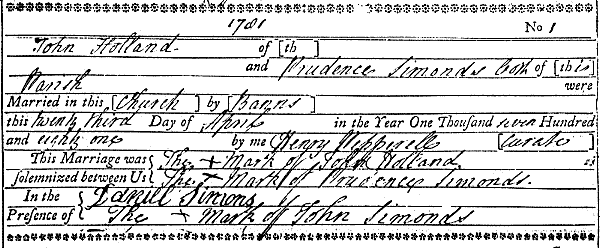 1781 No 1
John Holland of [th ]
and Prudence Simonds both of [this]
Parish were
Married in this [Church] by [Banns]
this twenty third Day of April in the Year One Thousand seven Hundred
and eighty one by me Henry Pepperell [Curate]
This Marriage was { The + Mark of John Holland
solemnized between Us { The + Mark of Prudence Simonds.
In the { Simons
Presence of { The + Mark of John Simonds